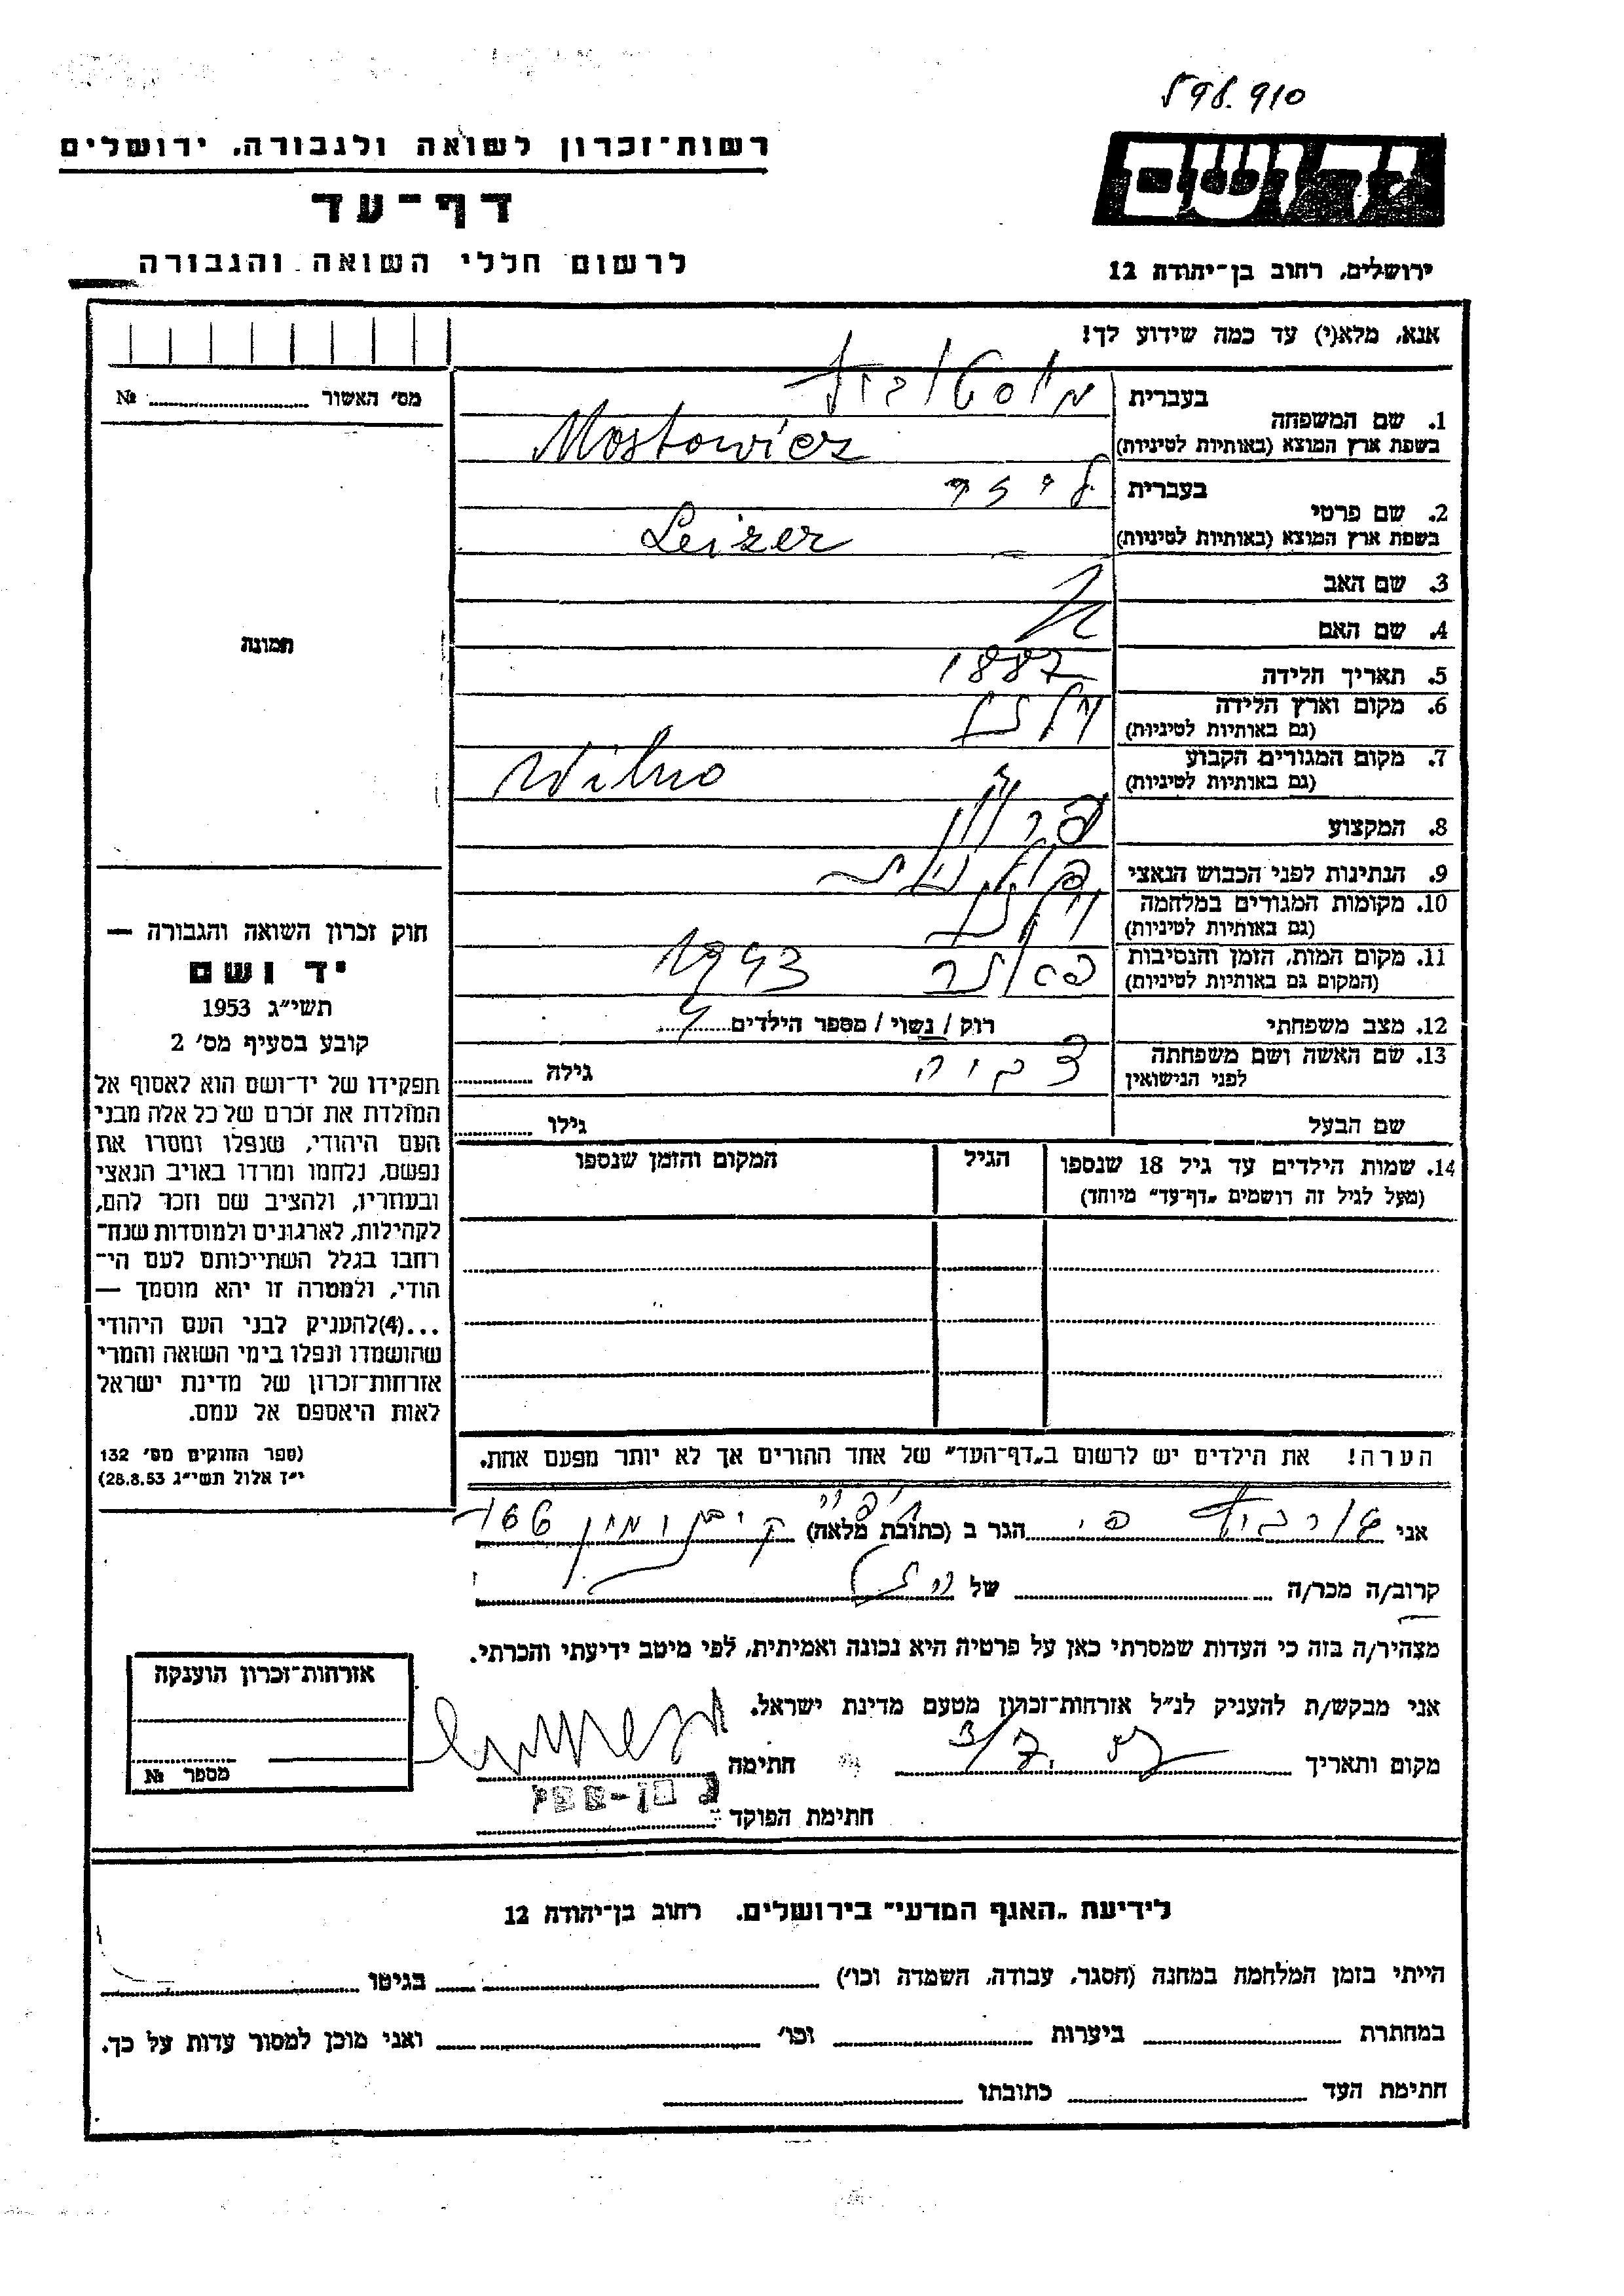 598.910
רשות־זכרון לשואה ולגבורה, ירושלים
דף־עד
לרשום חללי השואה והגבורה
ידושם
ירושלים, רחוב בן־יהודה 12
אנא, מלא(י) עד כמה שידוע לך!
מס׳ האשור № 
1. שם המשפחה
בעברית מוסטוביץ
בשפת ארץ המוצא (באותיות לטיניות) Mostowicz
2. שם פרטי
בעברית לייזר
בשפת ארץ המוצא (באותיות לטיניות) Leizer
3. שם האב
4. שם האם
5. תאריך הלידה 1887
6. מקום וארץ הלידה וילנה
(גם באותיות לטיניות)
7. מקום המגורים הקבוע Wilno
(גם באותיות לטיניות)
8. המקצוע
9. הנתינות לפני הכבוש הנאצי פולנית
10. מקומות המגורים במלחמה וילנה
(גם באותיות לטיניות)
11. מקום המות, הזמן והנסיבות פונר 1943
(המקום גם באותיות לטיניות)
12. מצב משפחתי רוק / נשוי / מספר הילדים 4
13. שם האשה ושם משפחתה צביה גילה
לפני הנישואין
שם הבעל גילו
14. שמות הילדים עד גיל 18 שנספו הגיל המקום והזמן שנספו
(מעל לגיל זה רושמים „דף־עד״ מיוחד)
הערה! את הילדים יש לרשום ב„דף־העד״ של אחד ההורים אך לא יותר מפעם אחת.
תמונה
חוק זכרון השואה והגבורה —
יד ושם
תשי״ג 1953
קובע בסעיף מס׳ 2
תפקידו של יד־ושם הוא לאסוף אל
המולדת את זכרם של כל אלה מבני
העם היהודי, שנפלו ומסרו את
נפשם, נלחמו ומרדו באויב הנאצי
ובעוזריו, ולהציב שם וזכר להם,
לקהילות, לארגונים ולמוסדות שנח־
רחבו בגלל השתייכותם לעם הי־
הודי, ולמטרה זו יהא מוסמך —
...(4)להעניק לבני העם היהודי
שהושמדו ונפלו בימי השואה והמרי
אזרחות־זכרון של מדינת ישראל
לאות היאספם אל עמם.
(ספר החוקים מס׳ 132
י״ד אלול תשי״ג 28.8.53)
אני הגר ב (כתובת מלאה) חיפה
קרוב/ה מכר/ה של
מצהיר/ה בזה כי העדות שמסרתי כאן על פרטיה היא נכונה ואמיתית, לפי מיטב ידיעתי והכרתי.
אני מבקש/ת להעניק לנ״ל אזרחות־זכרון מטעם מדינת ישראל.
מקום ותאריך חתימה
חתימת הפוקד
אזרחות־זכרון הוענקה
מספר №
לידיעת „האגף המדעי״ בירושלים, רחוב בן־יהודה 12
הייתי בזמן המלחמה במחנה (הסגר, עבודה, השמדה וכו׳) בגיטו
במחתרת ביערות וכו׳ ואני מוכן למסור עדות על כך.
חתימת העד כתובתו